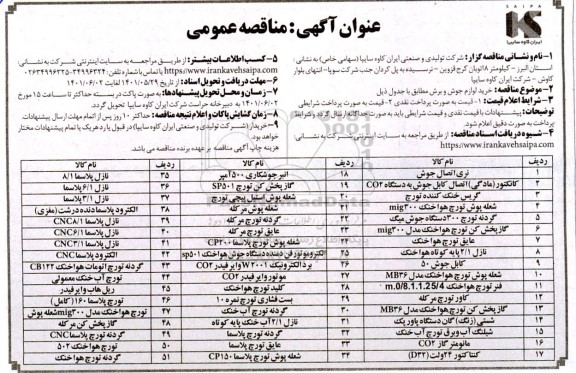 SAIPA
ایران کاوه سایپا
عنوان آگهی: مناقصه عمومی
۱- نام و نشانی مناقصه گزار: شرکت تولیدی و صنعتی ایران کاوه سایپا (سهامی خاص) به نشانی:
استان البرز - کیلومتر ۸ اتوبان کرج قزوین - نرسیده به پل کردان جنب شرکت سوپا - انتهای بلوار
کاوش - شرکت ایران کاوه سایپا
۲- موضوع مناقصه: خرید لوازم جوش و برش مطابق با جدول ذیل
۳- شرایط اعلام قیمت: ۱- قیمت به صورت پرداخت نقدی ۲- قیمت به صورت پرداخت شرایطی
توضیحات: پیشنهادات با قیمت نقدی و قیمت شرایطی باید به صورت جداگانه ارسال گردد و شرایط
پرداخت به صورت دقیق اعلام شود.
۴- شیوه دریافت اسناد مناقصه: از طریق مراجعه به سایت اینترنتی شرکت به نشانی:
https://www.irankavehsaipa.com
۵- کسب اطلاعات بیشتر: از طریق مراجعه به سایت اینترنتی شرکت به نشانی:
https://www.irankavehsaipa.com یا تماس با شماره تلفن: ۳۴۹۹۶۳۲۴-۰۲۶۳۴۹۹۶۳۲۵
۶- مهلت دریافت و تحویل اسناد: از تاریخ ۱۴۰۱/۰۵/۲۹ لغایت ۱۴۰۱/۰۶/۰۲
۷- زمان و محل تحویل پیشنهادها: به صورت پاکت در بسته حداکثر تا ساعت ۱۵ مورخ
۱۴۰۱/۰۶/۰۲ به دبیرخانه حراست شرکت ایران کاوه سایپا تحویل گردد.
۸- زمان گشایش پاکات و اعلام نتیجه مناقصه: حداکثر ۱۰ روز پس از اتمام مهلت ارسال پیشنهادات
۹- خریدار (شرکت تولیدی و صنعتی ایران کاوه سایپا) در قبول یا رد هر یک یا تمام پیشنهادات مختار
خواهد بود.
هزینه چاپ آگهی مناقصه بر عهده برنده مناقصه می باشد.
ردیف نام کالا ردیف نام کالا ردیف نام کالا
۱ نری اتصال جوش ۱۸ انبر جوشکاری ۵۰۰ آمپر ۳۵ نازل پلاسما ۸/۱
۲ کانکتور (مادگی) اتصال کابل جوش به دستگاه CO2 ۱۹ گاز پخش کن تورچ SP501 ۳۶ نازل ۶/۱ پلاسما
۳ گریس خنک کننده تورچ ۲۰ شعله پوش استیل پیچی تورچ ۳۷ نازل ۳/۱ پلاسما
۴ شعله پوش تورچ هوا خنک mig300 ۲۱ شعله پوش مرکله ۳۸ الکترود پلاسما دنده درشت (مغزی)
۵ گردنه تورچ ۳۰۰ دستگاه جوش میگ ۲۲ گردنه تورچ مرکله ۳۹ نازل پلاسما CNC۸/۱
۶ گاز پخش کن تورچ هوا خنک مدل mig300 ۲۳ عایق تورچ مرکله ۴۰ نازل پلاسما CNC۶/۱
۷ عایق تورچ هوا خنک ۲۴ شعله پوش تورچ پلاسما CP200 ۴۱ نازل پلاسما CNC۳/۱
۸ نازل ۲/۱ پایه کوتاه هوا خنک ۲۵ الکتروموتور فن دمنده دستگاه جوش هوا خنک sp501 ۴۲ الکترود پلاسما CNC
۹ کابل جوش ۵۰ ۲۶ برد الکترونیک W2001 وایر فیدر CO2 ۴۳ گردنه تورچ اتومات هوا خنک CB122
۱۰ شعله پوش تورچ هوا خنک مدل MB36 ۲۷ موتور وایر فیدر CO2 ۴۴ تورچ آب خنک معمولی
۱۱ فنر تورچ هوا خنک m.0/8.1.1.25/4 ۲۸ کلید تورچ هوا خنک ۴۵ ریل هاب وایر فیدر
۱۲ کاور تورچ مرکله ۲۹ بست فشاری تورچ نمره ۱۰ ۴۶ تورچ پلاسما ۱۶۰ (کامل)
۱۳ گاز پخش کن تورچ هوا خنک مدل MB36 ۳۰ گردنه تورچ آب خنک ۴۷ تورچ هوا خنک مدل mig300 شعله پوش
۱۴ شستی (زنگ) گان دستگاه پاور پک ۳۱ نازل ۲/۱ آب خنک پایه کوتاه ۴۸ گاز پخش کن مرکله
۱۵ شیلنگ آب و برق تورچ آب خنک ۳۲ گردنه تورچ پلاسما ۴۹ گردنه تورچ پلاسما CNC
۱۶ مانومتر گاز CO2 ۳۳ عایق تورچ پلاسما ۵۰ تورچ هوا خنک ۵۰۲
۱۷ کنتاکتور ۲۴ ولت (D32) ۳۴ شعله پوش تورچ پلاسما CP150 ۵۱ گردنه تورچ هوا خنک